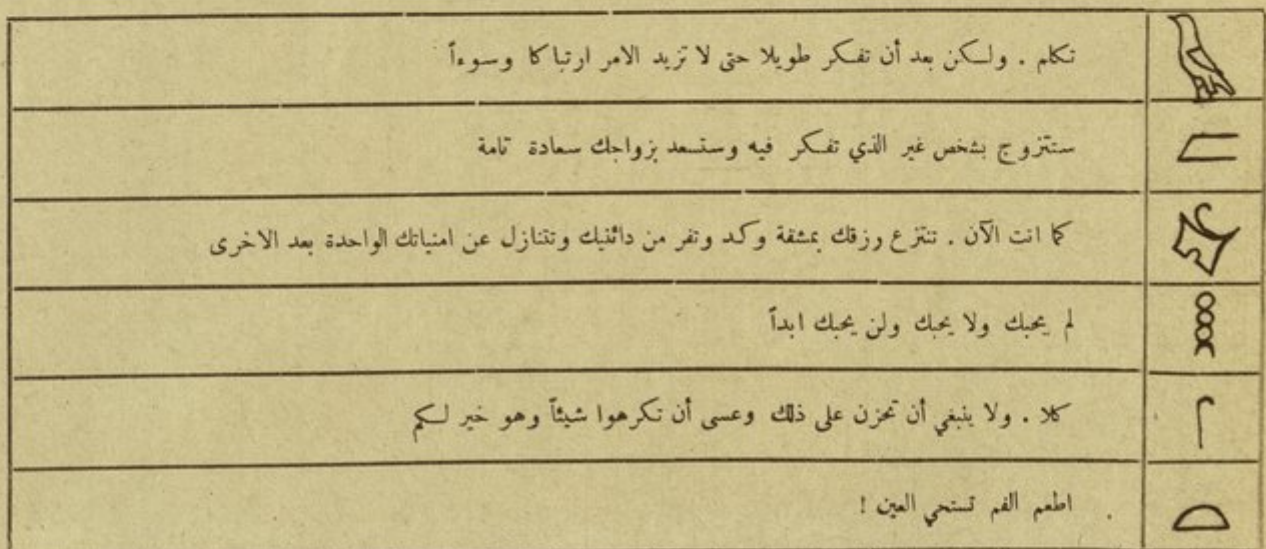 تكلم . ولكن بعد أن تفكر طويلا حتى لا تزيد الامر ارتباكا وسوءاً
ستتزوج بشخص غير الذي تفكر فيه وستسعد بزواجك سعادة تامة
كما انت الآن . تنتزع رزقك بمشقة وكد وتفر من دائنيك وتتنازل عن امنياتك الواحدة بعد الاخرى
لم يحبك ولا يحبك ولن يحبك ابداً
كلا . ولا ينبغي أن تحزن على ذلك وعسى أن تكرهوا شيئاً وهو خير لكم
اطعم الفم تستحي العين !